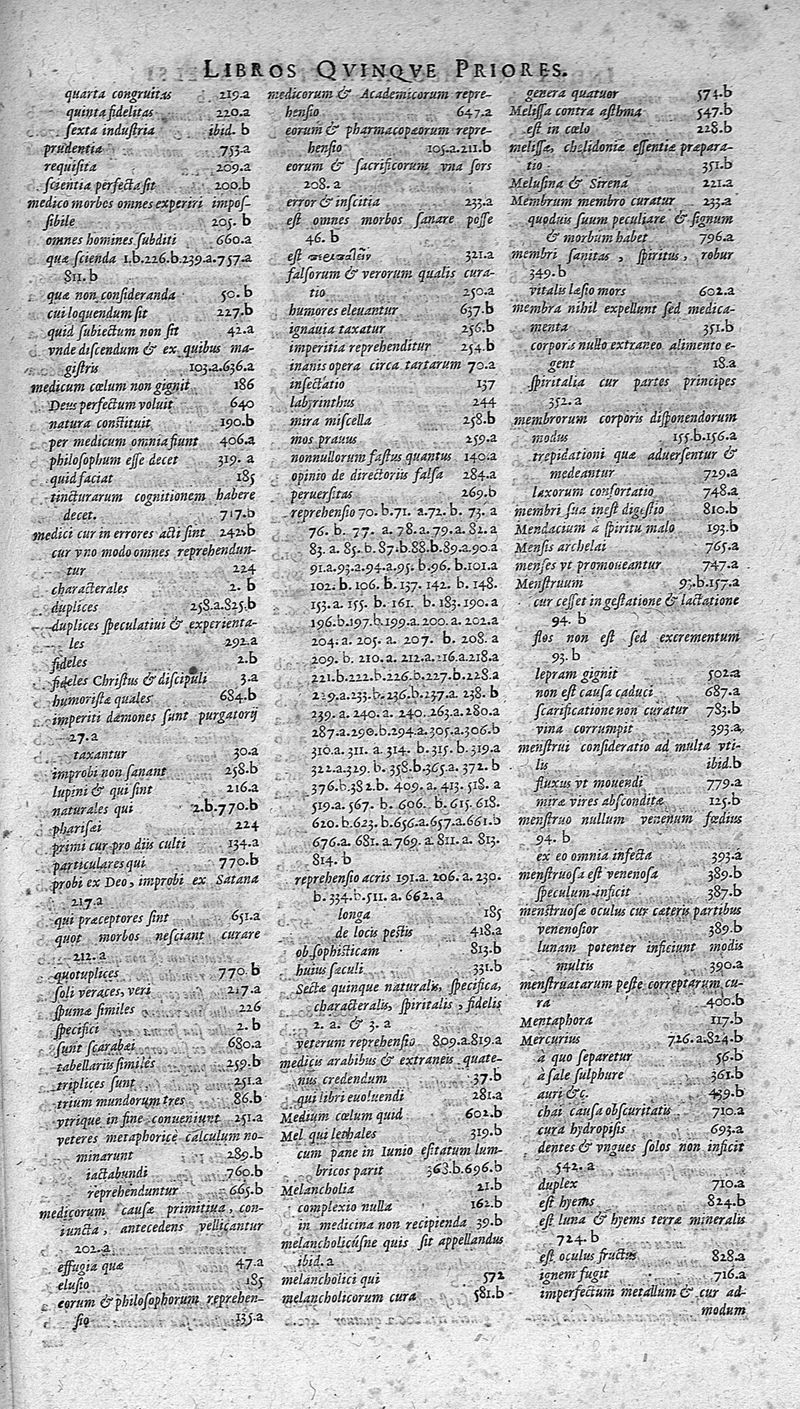 LIBROS QVINQVE PRIORES.
quarta congruitas 219.a
quinta fidelitas 220.a
ſexta induſtria ibid. b
prudentia 753.a
requiſita 209.a
ſcientia perfecta ſit 200.b
medico morbos omnes experiri impoſ-
ſibile 205. b
omnes homines ſubditi 660.a
quæ ſcienda 1.b.226.b.239.a.757.a
811. b
quæ non conſideranda 50. b
cui loquendum ſit 227.b
quid ſubiectum non ſit 42.a
vnde diſcendum & ex quibus ma-
giſtris 103.a.636.a
medicum cœlum non gignit 186
Deus perfectum voluit 640
natura conſtituit 190.b
per medicum omnia fiunt 406.a
philoſophum eſſe decet 319. a
quid faciat 185
tincturarum cognitionem habere
decet. 717.b
medici cur in errores acti ſint 242.b
cur vno modo omnes reprehendun-
tur 224
characterales 2. b
duplices 258.a.825.b
duplices ſpeculatiui & experienta-
les 292.a
fideles 2.b
fideles Chriſtus & diſcipuli 3.a
humoriſtæ quales 684.b
imperiti dæmones ſunt purgatorij
27.a
taxantur 30.a
improbi non ſanant 258.b
lupini & qui ſint 216.a
naturales qui 2.b.770.b
phariſæi 224
primi cur pro diis culti 134.a
particulares qui 770.b
probi ex Deo, improbi ex Satana
217.a
qui præceptores ſint 651.a
quot morbos neſciant curare
212. a
quotuplices 770. b
ſoli veraces, veri 217.a
ſpumæ ſimiles 226
ſpecifici 2. b
ſunt ſcarabæi 680.a
tabellariis ſimiles 259.b
triplices ſunt 251.a
trium mundorum tres 86.b
vtrique in fine conueniunt 251.a
veteres metaphoricè calculum no-
minarunt 289.b
iactabundi 760.b
reprehenduntur 665.b
medicorum cauſæ primitiua, con-
iuncta, antecedens vellicantur
202.a
effugia quæ 47.a
eluſio 185
eorum & philoſophorum reprehen-
ſio 135.a
medicorum & Academicorum repre-
henſio 647.a
eorum & pharmacopæorum repre-
henſio 105.a.211.b
eorum & ſacrificorum vna ſors
208. a
error & inſcitia 233.a
eſt omnes morbos ſanare poſſe
46. b
eſt 321.a
falſorum & verorum qualis cura-
tio 250.a
humores eleuantur 637.b
ignauia taxatur 256.b
imperitia reprehenditur 254.b
inanis opera circa tartarum 70.a
inſectatio 137
labyrinthus 244
mira miſcella 258.b
mos prauus 259.a
nonnullorum faſtus quantus 140.a
opinio de directoriis falſa 284.a
peruerſitas 269.b
reprehenſio 70. b.71. a.72. b. 73. a
76. b. 77. a. 78.a. 79.a. 82. a
83. a. 85. b. 87. b.88.b.89.a.90.a
91.a.93.a.94.a.95. b.96. b.101.a
102. b. 106. b. 137. 142. b. 148.
153.a. 155. b. 161. b. 183.190.a
196.b.197.b.199.a.200. a. 202.a
204. a. 205. a. 207. b. 208. a
209. b. 210. a. 212.a.216.a.218.a
221.b.222.b.226.b.227.b.228.a
229.a.233.b.236.b.237.a. 238. b
239. a. 240. a. 240. 263.a.280.a
287.a.290.b.294.a.305.a.306.b
310.a. 311. a. 314. b. 315. b. 319.a
322.a.329. b. 358.b.365.a. 372. b
376.b.382.b. 409. a. 413. 518. a
519.a. 567. b. 606. b. 615. 618.
620. b.623. b.656.a.657.a.661.b
676.a. 681. a. 769. a. 811. a. 813.
814. b
reprehenſio acris 191.a. 206. a. 230.
b. 334.b.511. a. 662.a
longa 185
de locis peſtis 418.a
ob ſophiſticam 813.b
huius ſæculi 331.b
Sectæ quinque naturalis, ſpecifica,
characteralis, ſpiritalis, fidelis
2. a. & 3. a
veterum reprehenſio 809.a.819.a
medicis arabibus & extraneis quate-
nus credendum 37.b
qui libri euoluendi 281.a
Medium cœlum quid 602.b
Mel qui lethales 319.b
cum pane in Iunio eſitatum lum-
bricos parit 368.b.696.b
Melancholia 21.b
complexio nulla 162.b
in medicina non recipienda 39.b
melancholicúsne quis ſit appellandus
ibid. a
melancholici qui 572
melancholicorum cura 581.b
genera quatuor 574.b
Meliſſa contra aſthma 547.b
eſt in cœlo 228.b
meliſſæ, chelidoniæ eſſentiæ præpara-
tio 351.b
Meluſina & Sirena 221.a
Membrum membro curatur 233.a
quoduis ſuum peculiare & ſignum
& morbum habet 796.a
membri ſanitas, ſpiritus, robur
349. b
vitalis læſio mors 602.a
membra nihil expellunt ſed medica-
menta 351.b
corporis nullo extraneo alimento e-
gent 18.a
ſpiritalia cur partes principes
352. a
membrorum corporis diſponendorum
modus 155.b.156.a
trepidationi quæ aduerſentur &
medeantur 729.a
laxorum confortatio 748.a
membri ſua ineſt digeſtio 810.b
Mendacium à ſpiritu malo 193.b
Menſis archelai 765.a
menſes vt promoueantur 747.a
Menſtruum 93.b.157.a
cur ceſſet in geſtatione & lactatione
94. b
flos non eſt ſed excrementum
93. b
lepram gignit 502.a
non eſt cauſa caduci 687.a
ſcarificatione non curatur 783.b
vina corrumpit 393.a
menſtrui conſideratio ad multa vti-
lis ibid.b
fluxus vt mouendi 779.a
miræ vires abſconditæ 125.b
menſtruo nullum venenum fœdius
94. b
ex eo omnia infecta 393.a
menſtruoſa eſt venenoſa 389.b
ſpeculum inficit 387.b
menſtruoſæ oculus cur cæteris partibus
venenoſior 389.b
lunam potenter inficiunt modis
multis 390.a
menſtruatarum peſte correptarum cu-
ra 400.b
Mentaphora 117.b
Mercurius 726.a.824.b
à quo ſeparetur 56.b
à ſale ſulphure 361.b
auri &c. 439.b
chai cauſa obſcuritatis 710.a
cura hydropiſis 693.a
dentes & vngues ſolos non inficit
542. a
duplex 710.a
eſt hyems 824.b
eſt luna & hyems terræ mineralis
724. b
eſt oculus fructus 828.a
ignem fugit 716.a
imperfectum metallum & cur ad-
modum